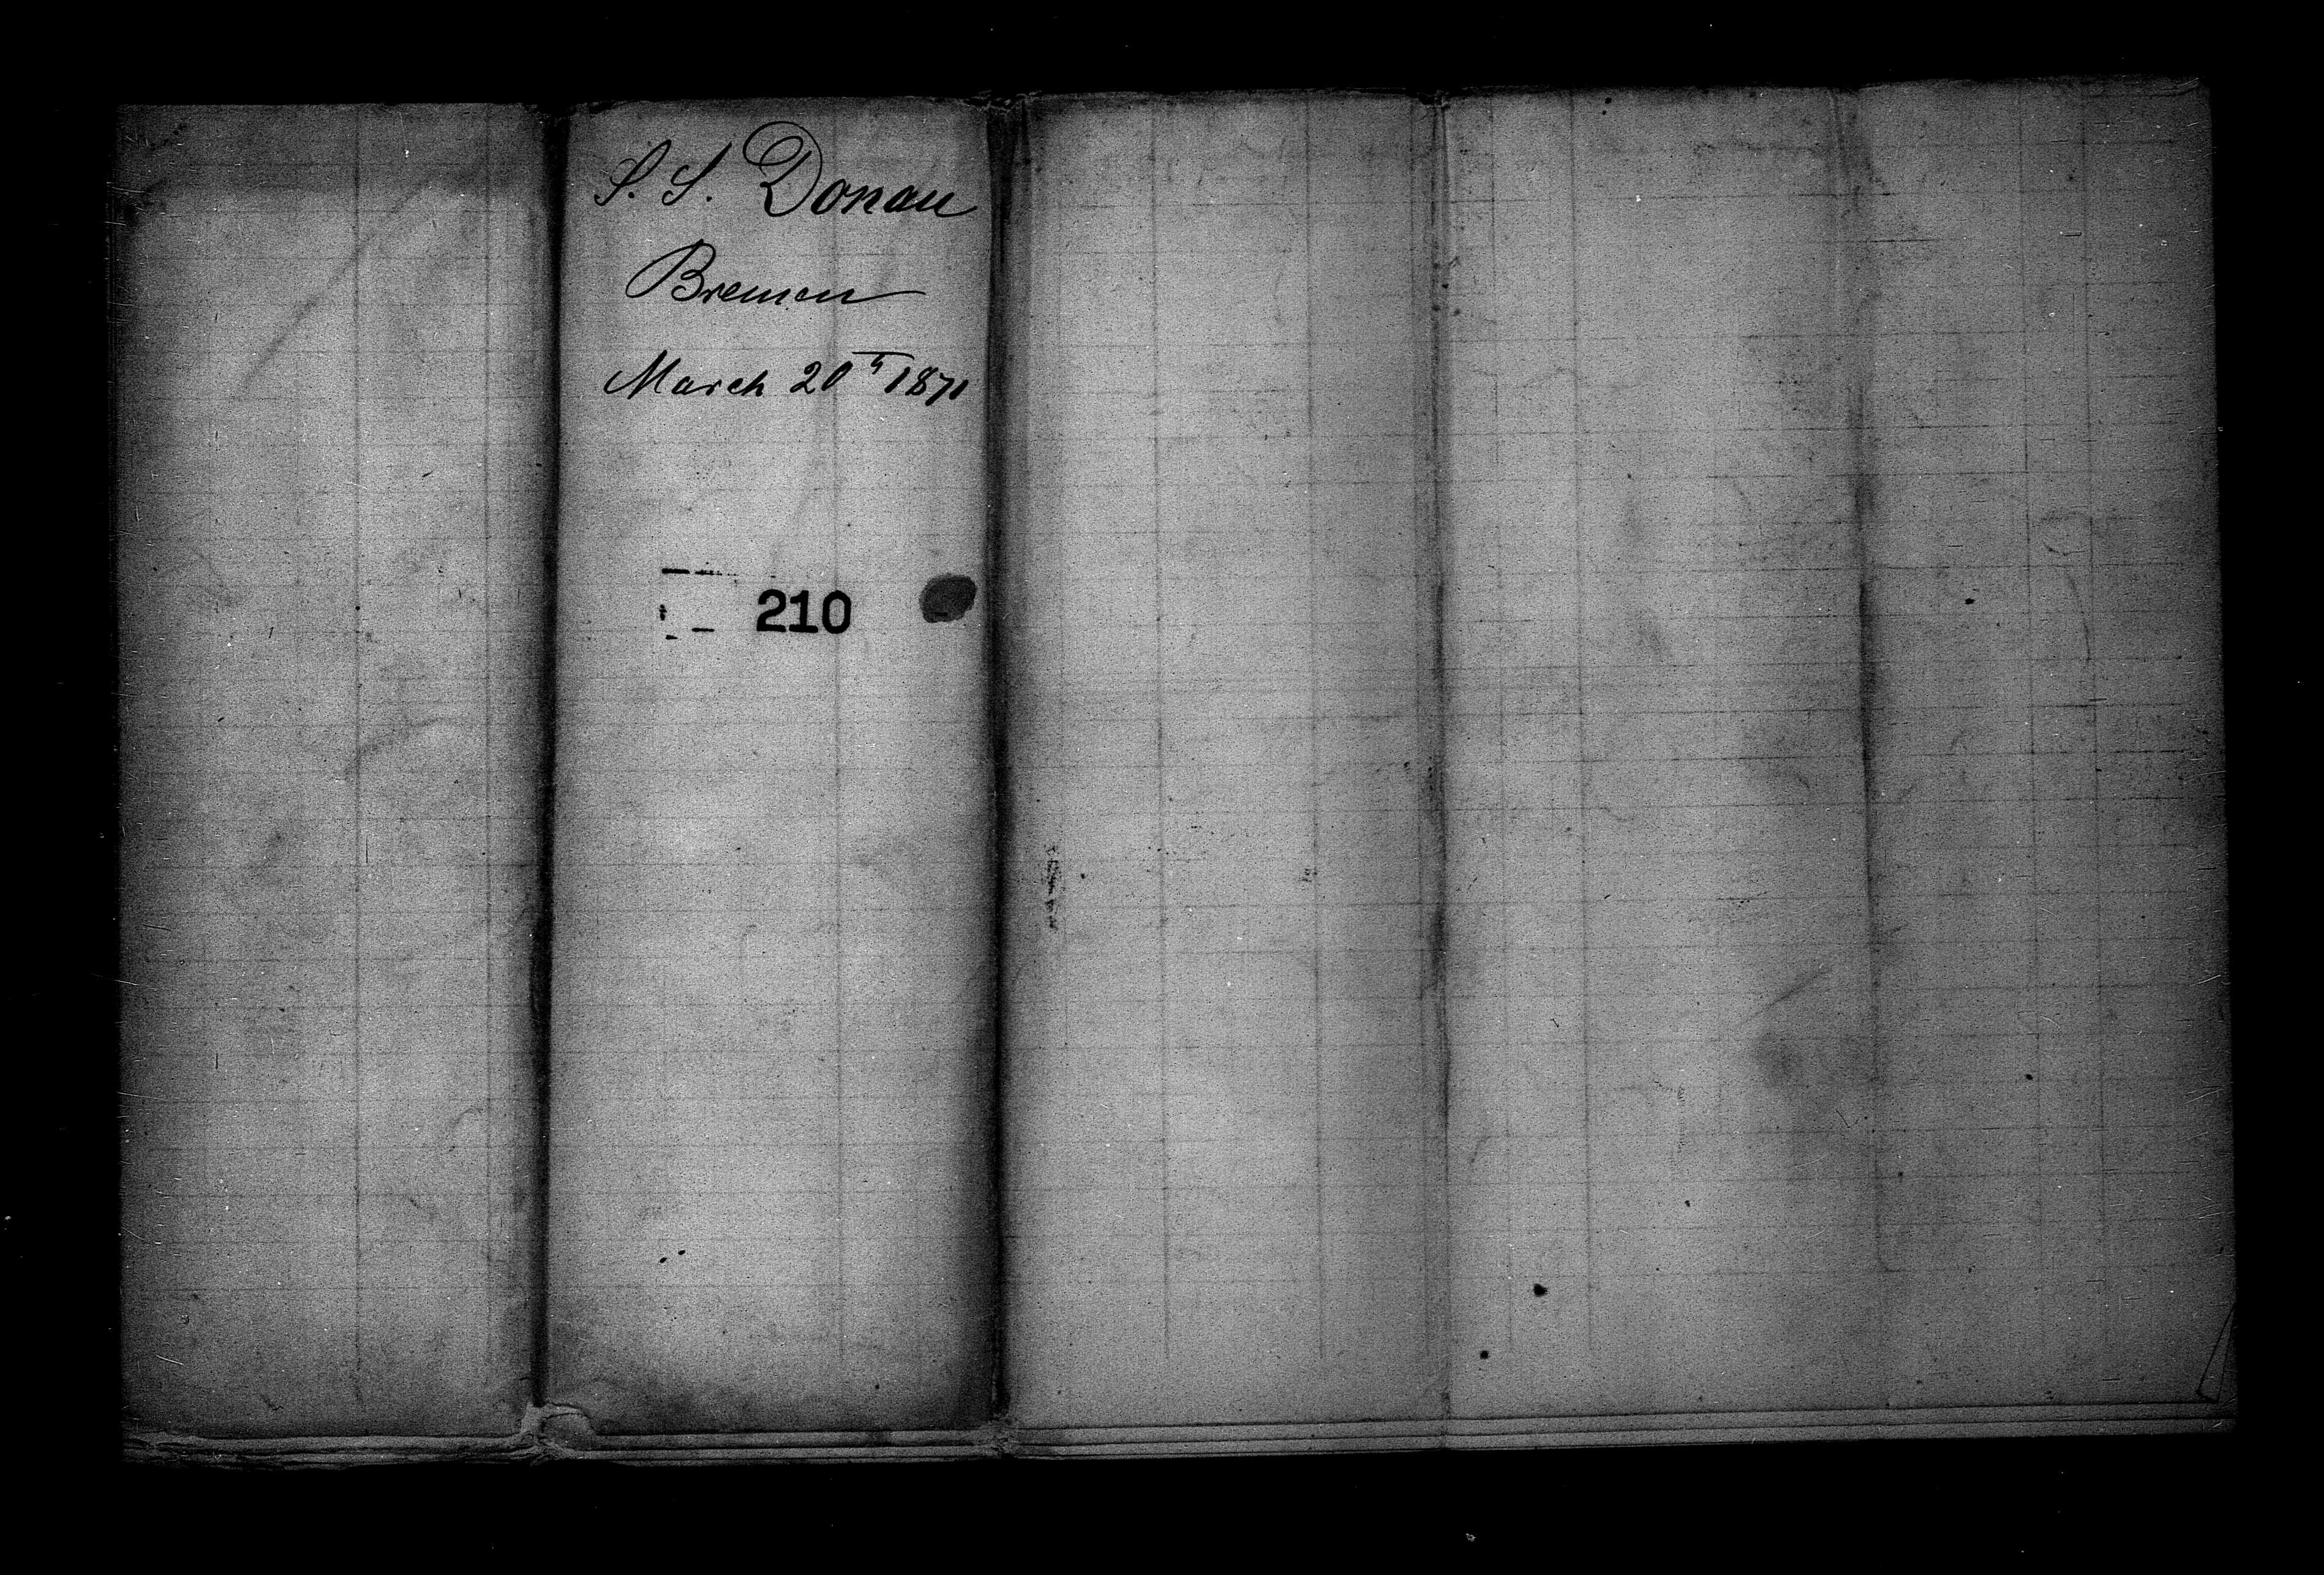 S. S. Donau
Bremen
March 20th 1871
210